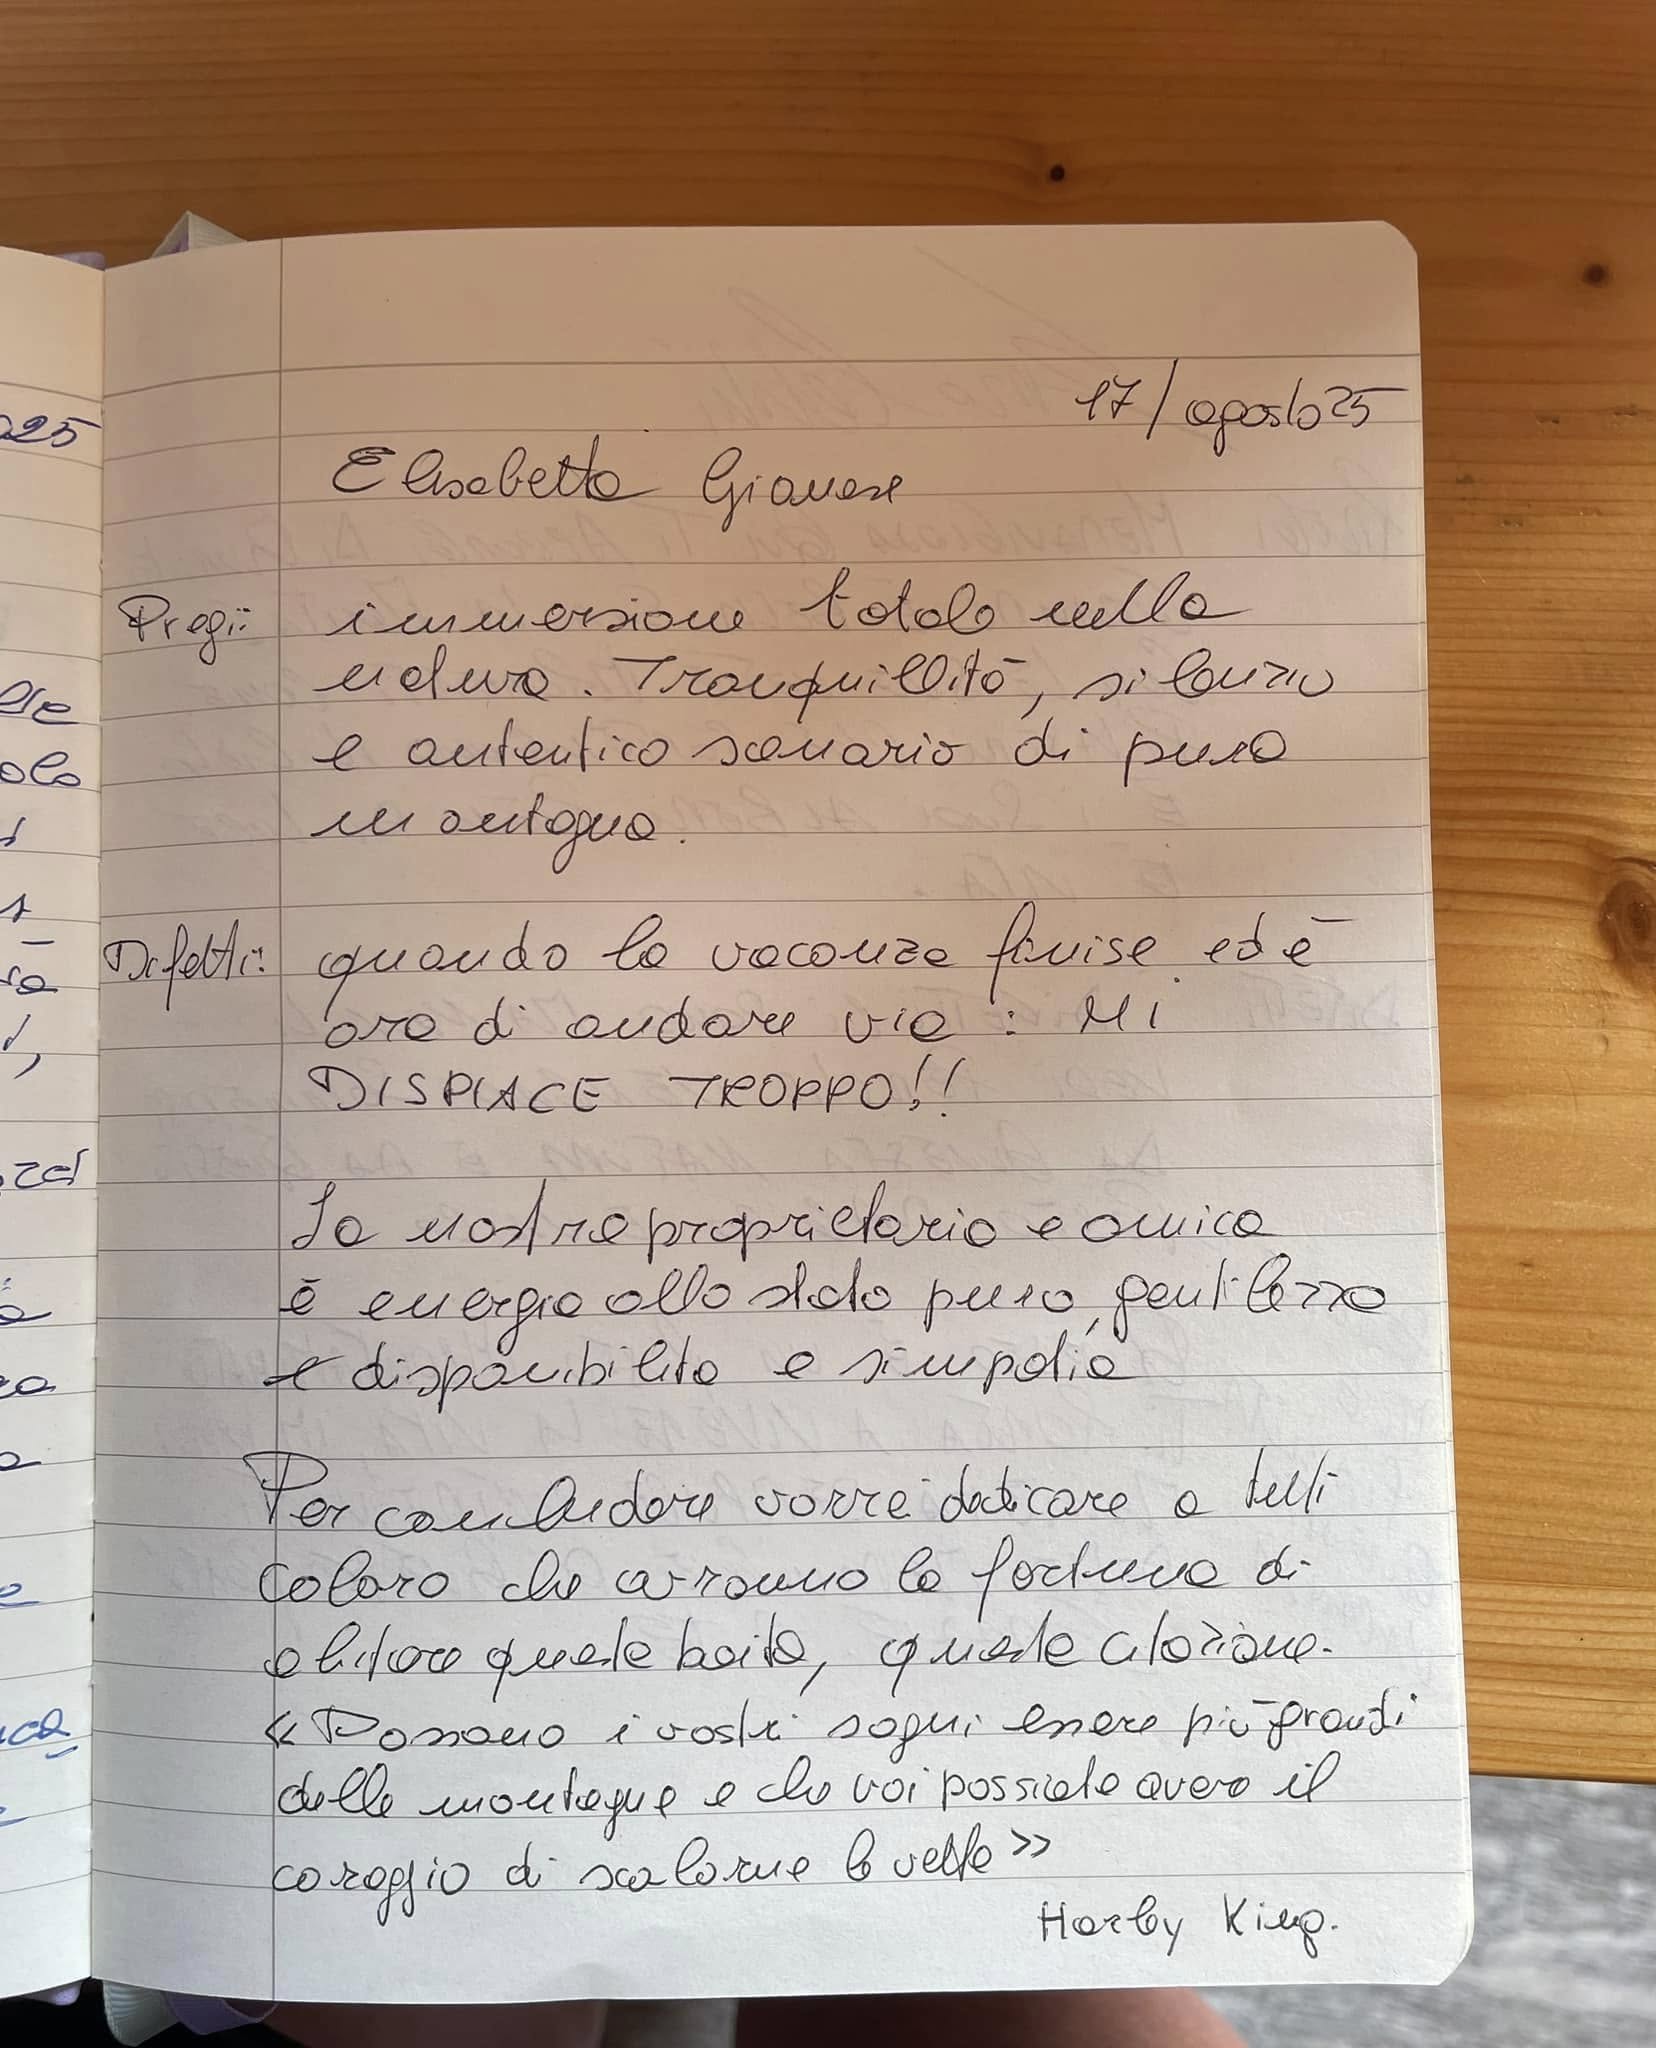 17/agosto 25
Elisabetta Gianese
Pregi: immersione totale nella
natura. Tranquillità, silenzio
e autentico scenario di pura
montagna.
Difetti: quando la vacanza finisce ed è
ora di andare via : MI
DISPIACE TROPPO!!
La nostra proprietaria e amica
è energia allo stato puro, gentilezza
e disponibilità e simpatia
Per concludere vorrei dedicare a tutti
coloro che avranno la fortuna di
abitare queste baita, queste citazione.
«Possano i vostri sogni essere più grandi
delle montagne e che voi possiate avere il
coraggio di scalarne le vette»
Harley King.